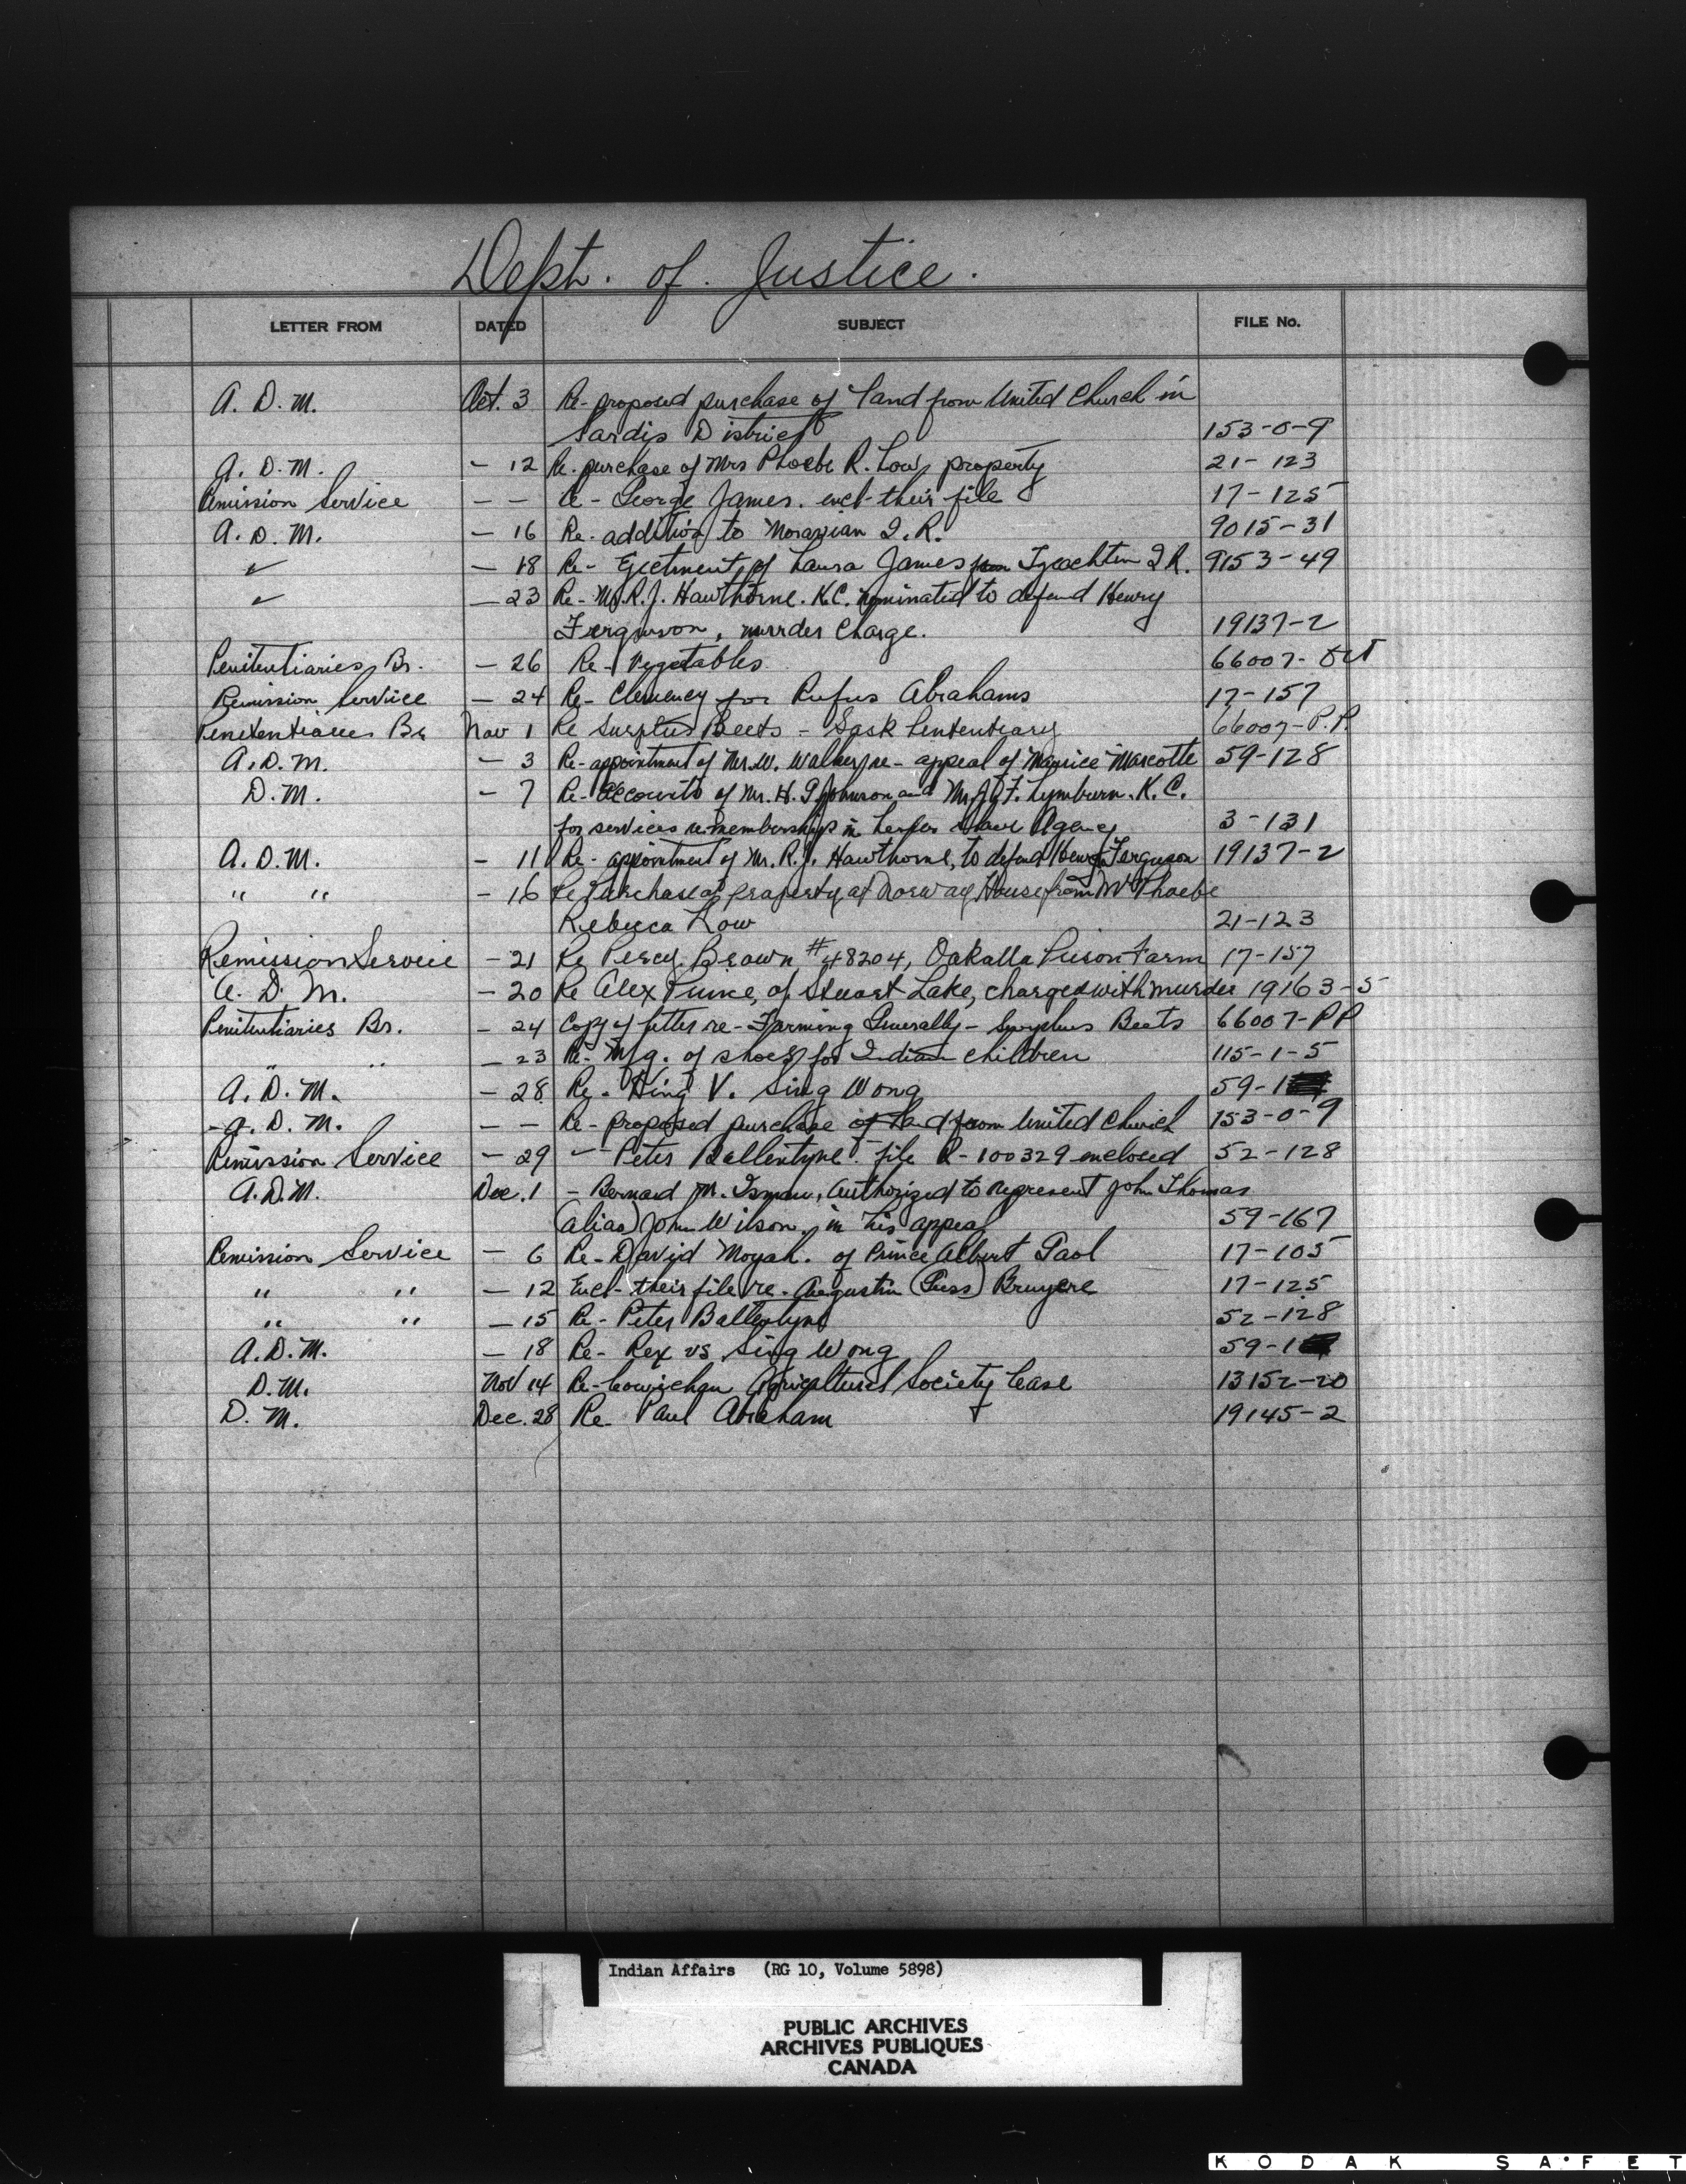 Dept. of. Justice.
LETTER FROM DATED SUBJECT FILE No.
A. D. M. Oct. 3 Re- proposed purchase of land from United Church in
Sardis District 153-0-9
A. D. M. - 12 Re. purchase of Mrs Phoebe R. Low, property 21-123
Remission Service - - Re- George James. encl- their file 17-125
A. D. M. - 16 Re- addition to Moravian I. R. 9015-31
✓ - 18 Re- Ejectment of Laura James from Tzeachten I R. 9153-49
✓ - 23 Re- Mr. R. J. Hawthorne. K.C. nominated to defend Henry
Ferguson, murder charge. 19137-2
Penitentiaries Br. - 26 Re- Vegetables 66007-
Remission Service - 24 Re- Clemency for Rufus Abrahams 17-157
Penitentiaries Br Nov 1 Re Surplus Beets - Sask Penitentiary 66007-P.P.
A. D. M. - 3 Re- appointment of Mr. W. Walker, re- appeal of Maurice Marcotte 59-128
D. M. - 7 Re- Accounts of Mr. H. G. Johnson and Mr. J. F. Lymburn. K. C.
for services re membership in Lesser Slave Agency 3-131
A. D. M. - 11 Re- appointment of Mr. R. J. Hawthorne, to defend Henry Ferguson 19137-2
" " - 16 Re Purchase of property at Norway House from Mrs Phoebe
Rebecca Low 21-123
Remission Service - 21 Re Percy Brown #48204, Oakalla Prison Farm 17-157
A. D. M. - 20 Re Alex Prince, of Stuart Lake, charged with murder 19163-5
Penitentiaries Br. - 24 Copy of letter re- Farming Generally - Surplus Beets 66007-PP
" " - 23 Re- Mfg. of shoes for Indian children 115-1-5
A. D. M. - 28 Re- King V. Sing Wong 59-1
A. D. M. - - Re- proposed purchase of land from United Church 153-0-9
Remission Service - 29 - Peter Ballentyne. file R-100329 enclosed 52-128
A. D. M. Dec. 1 - Bernard M. Isman, Authorized to represent John Thomas
(alias) John Wilson, in his appeal 59-167
Remission Service - 6 Re- David Moyah. of Prince Albert Gaol 17-105
" " - 12 Encl- their file re. Augustin (Puss) Bruyere 17-125
" " - 15 Re- Peter Ballentyne 52-128
A. D. M. - 18 Re- Rex vs Sing Wong 59-1
D. M. Nov 14 Re- Cowichan Agricultural Society Lease 13152-20
D. M. Dec. 28 Re- Paul Abraham 19145-2
Indian Affairs (RG 10, Volume 5898)
PUBLIC ARCHIVES
ARCHIVES PUBLIQUES
CANADA
KODAK SAFET